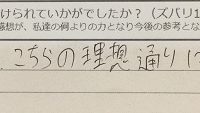 けられていかがでしたか？（ズバリ1
感想が、私達の何よりの力となり今後の参考とな
こちらの理想通りに